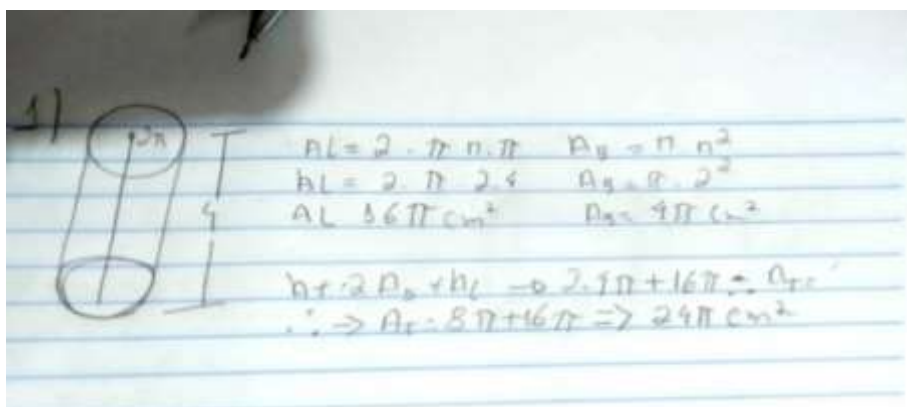 1)
4
AL = 2 . π r . π AB = π r²
AL = 2 . π 2 . 4 AB = π . 2²
AL 16π cm² AB = 4π cm²
AT = 2 AB + AL → 2.4π + 16π ∴ AT =
∴ → AT = 8π + 16π => 24π cm²